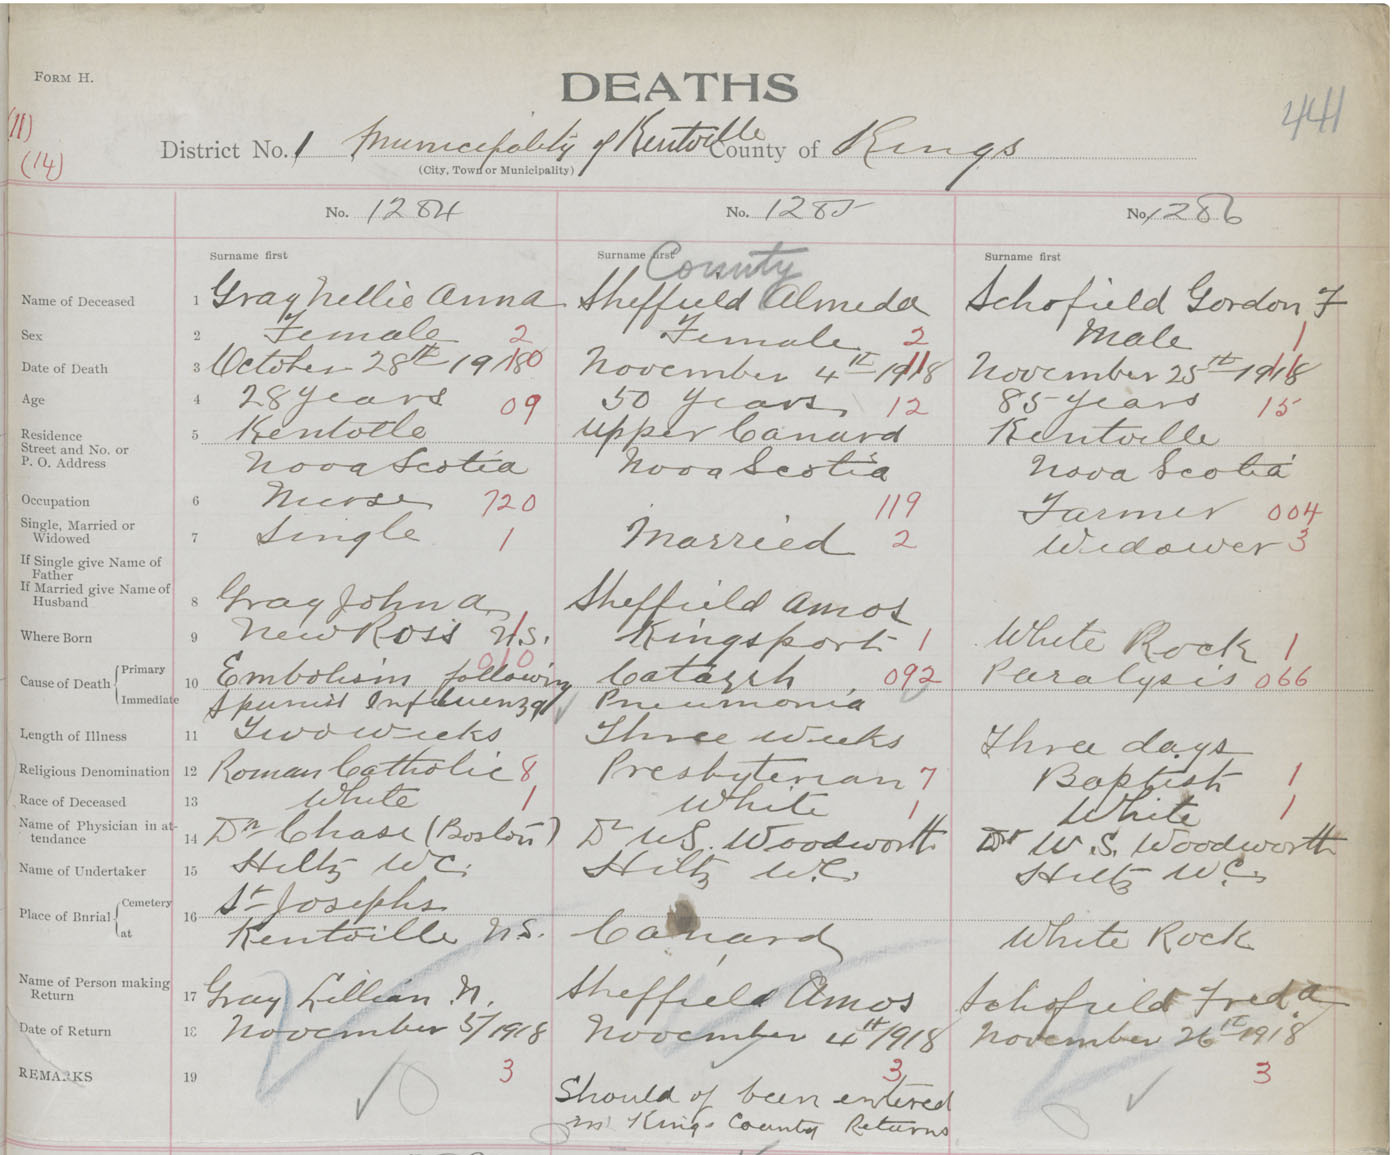 FORM H.
DEATHS
441
(11)
(14)
District No. 1 Municipality of Kentville County of Kings
(City, Town or Municipality)
No. 1284 No. 1285 No. 1286
Surname first Surname first Surname first
County
Name of Deceased 1 Gray Nellie Anna Sheffield Almeda Schofield Gordon F
Sex 2 Female 2 Female 2 Male 1
Date of Death 3 October 28th 1918 10 November 4th 1918 11 November 25th 1918 11
Age 4 28 years 09 50 years 12 85 years 15
Residence
Street and No. or
P. O. Address
5 Kentville Upper Canard Kentville
Nova Scotia Nova Scotia Nova Scotia
Occupation 6 Nurse 720 119 Farmer 004
Single, Married or
Widowed
7 Single 1 Married 2 Widower 3
If Single give Name of
Father
If Married give Name of
Husband
8 Gray John A Sheffield Amos
Where Born 9 New Ross N.S. 1 Kingsport 1 White Rock 1
010
Cause of Death Primary 10 Embolism following Catarrh 092 Paralysis 066
Immediate Spanish Influenza Pneumonia
Length of Illness 11 Two weeks Three weeks Three days
Religious Denomination 12 Roman Catholic 8 Presbyterian 7 Baptist 1
Race of Deceased 13 White 1 White 1 White 1
Name of Physician in at-
tendance
14 Dr Chase (Boston) Dr W.S. Woodworth Dr W.S. Woodworth
Name of Undertaker 15 Hiltz W.C. Hiltz W.C. Hiltz W.C.
Place of Burial Cemetery 16 St Josephs
at Kentville N.S. Canard White Rock
Name of Person making
Return
17 Gray Lillian N. Sheffield Amos Schofield Fred a
Date of Return 18 November 5/1918 November 4th/1918 November 26th 1918
REMARKS 19 3 3 3
Should of been entered
in Kings County Returns